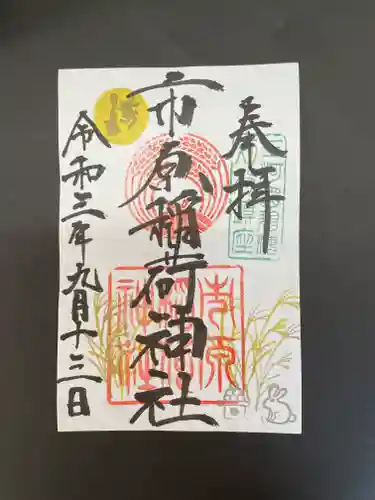 奉拝
市原稲荷神社
令和三年九月十三日